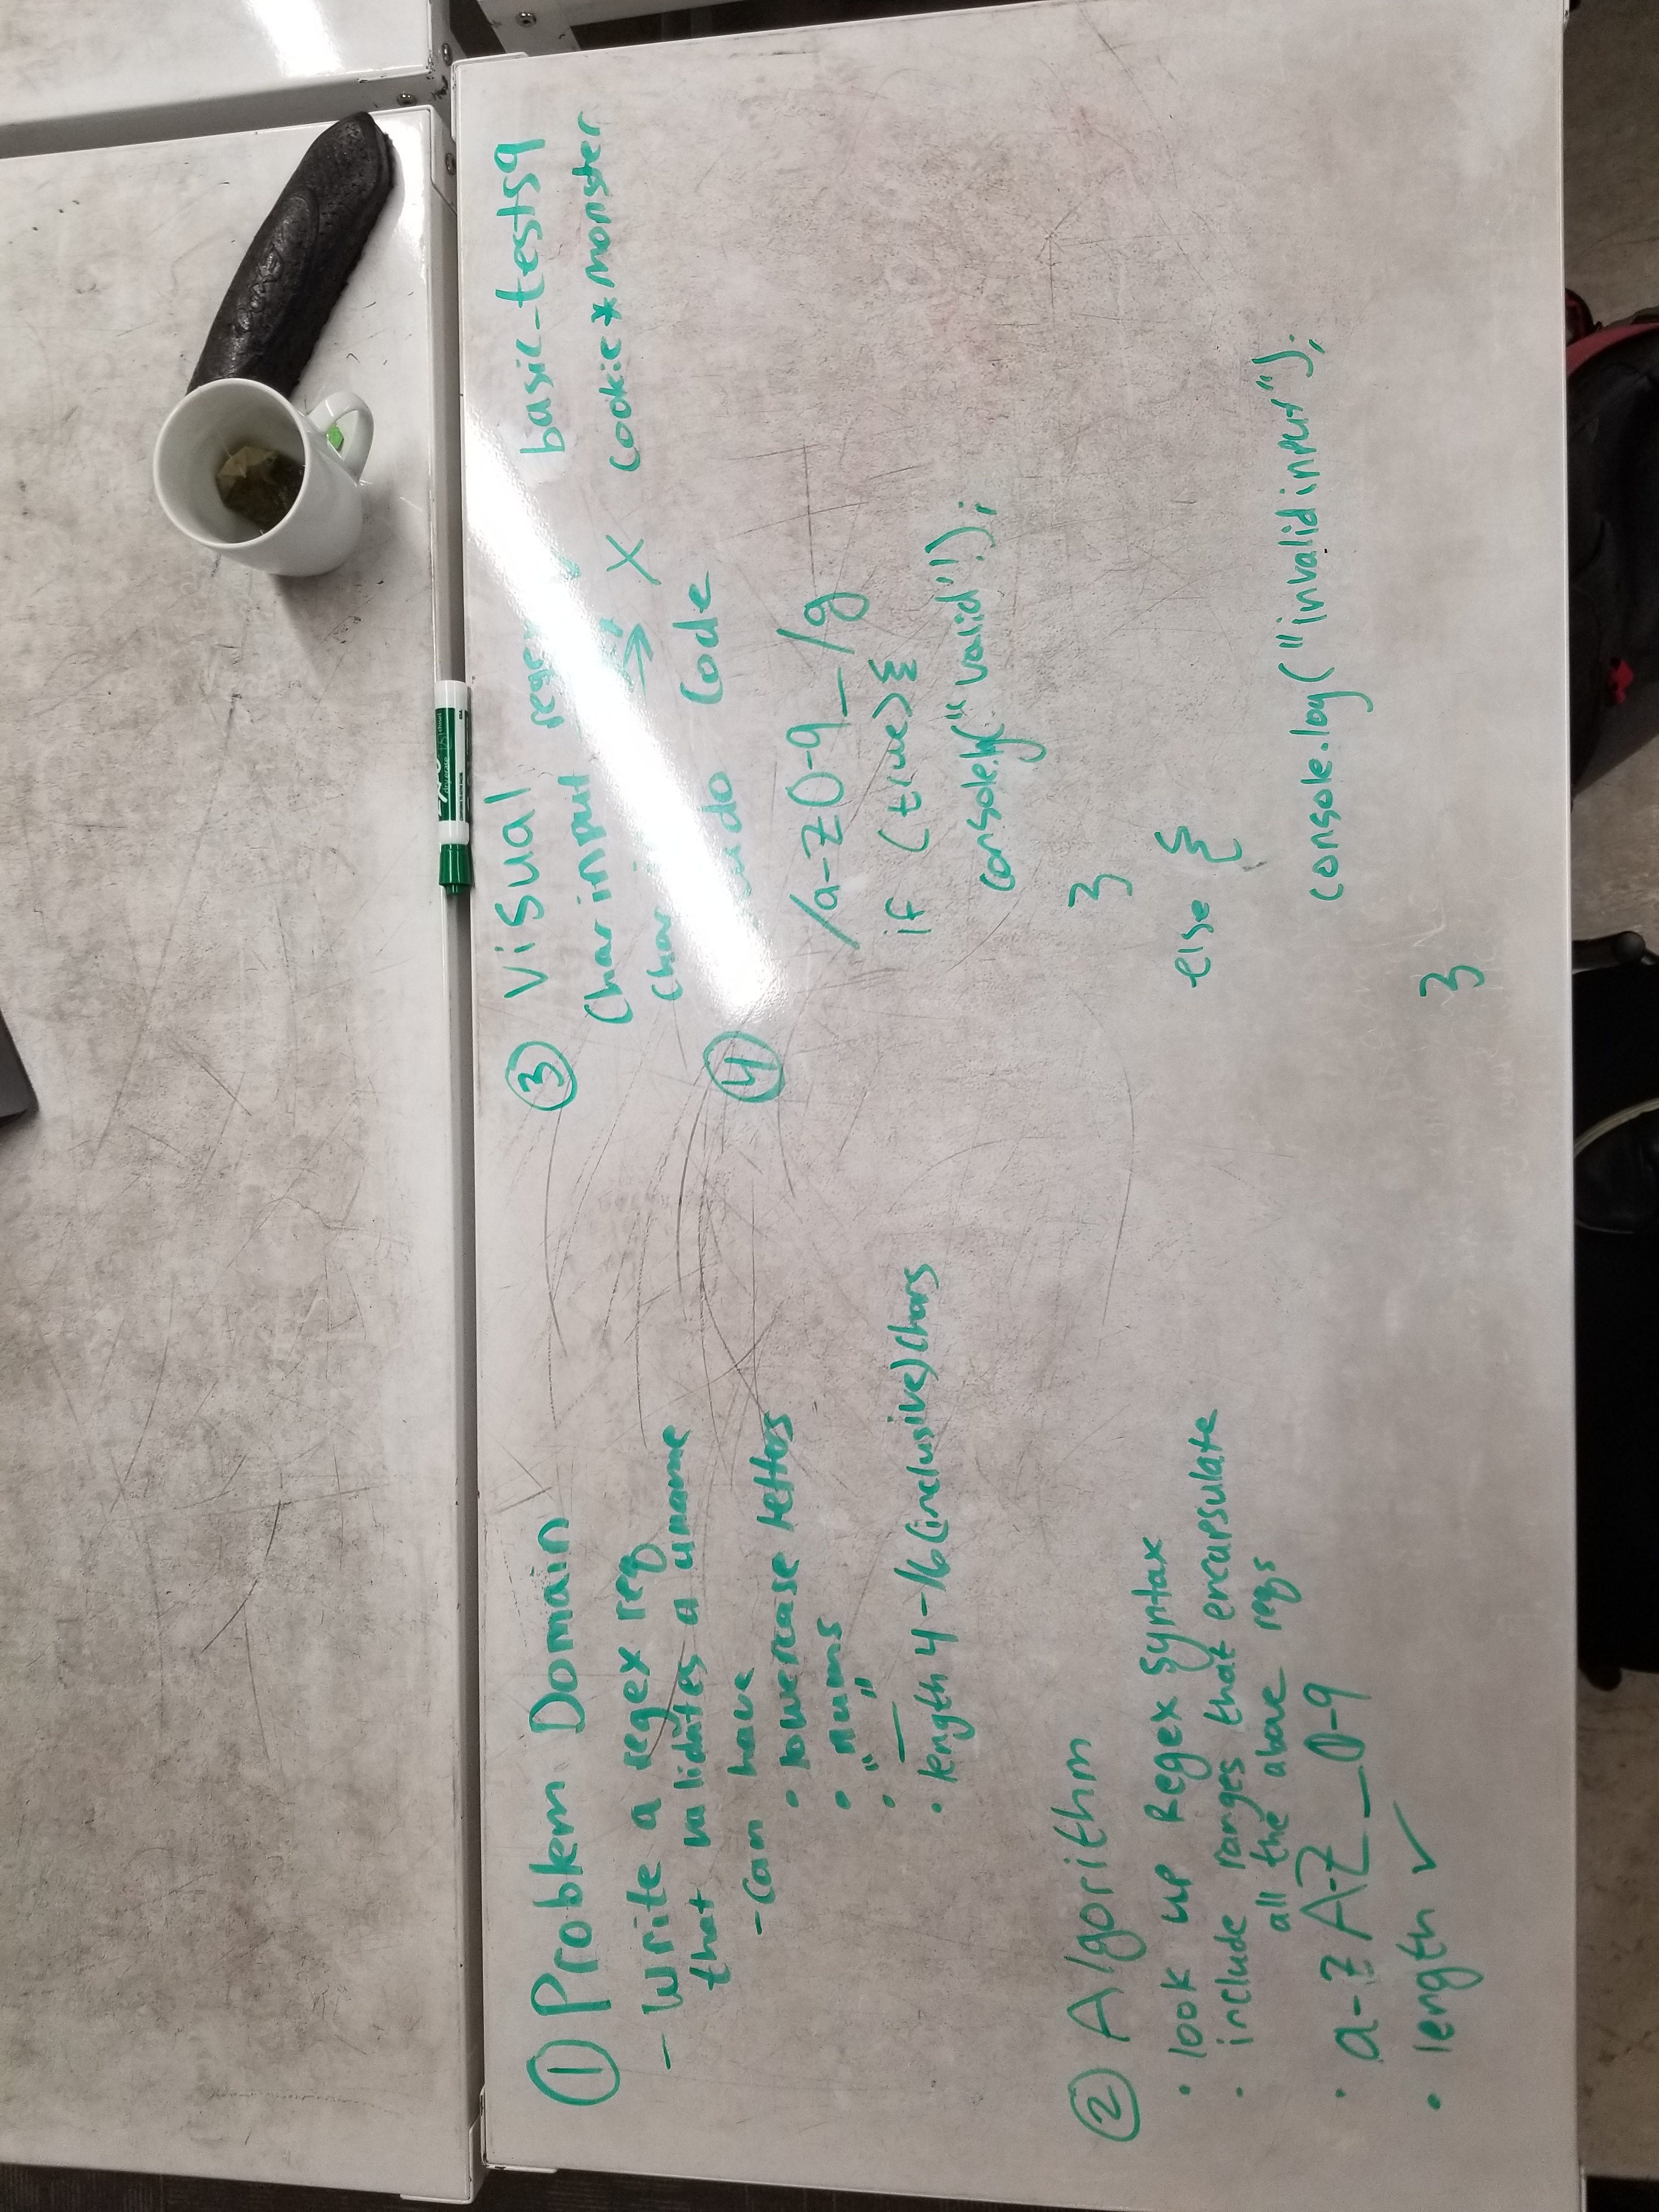 ① Problem Domain
- Write a regex req
that validates a uname
- Can have
• lowercase letters
• nums
• "_"
• length 4-16 (inclusive) chars
② Algorithm
• look up Regex Syntax
• include ranges that encapsulate
all the above reqs
• a-z A-Z _ 0-9
• length ✓
③ Visual
Char input regex basic-tests9
Char → X cookie*monster
④ Code
/a-z0-9_/g
if (true) {
console.log("valid");
}
else {
console.log("invalid input");
}